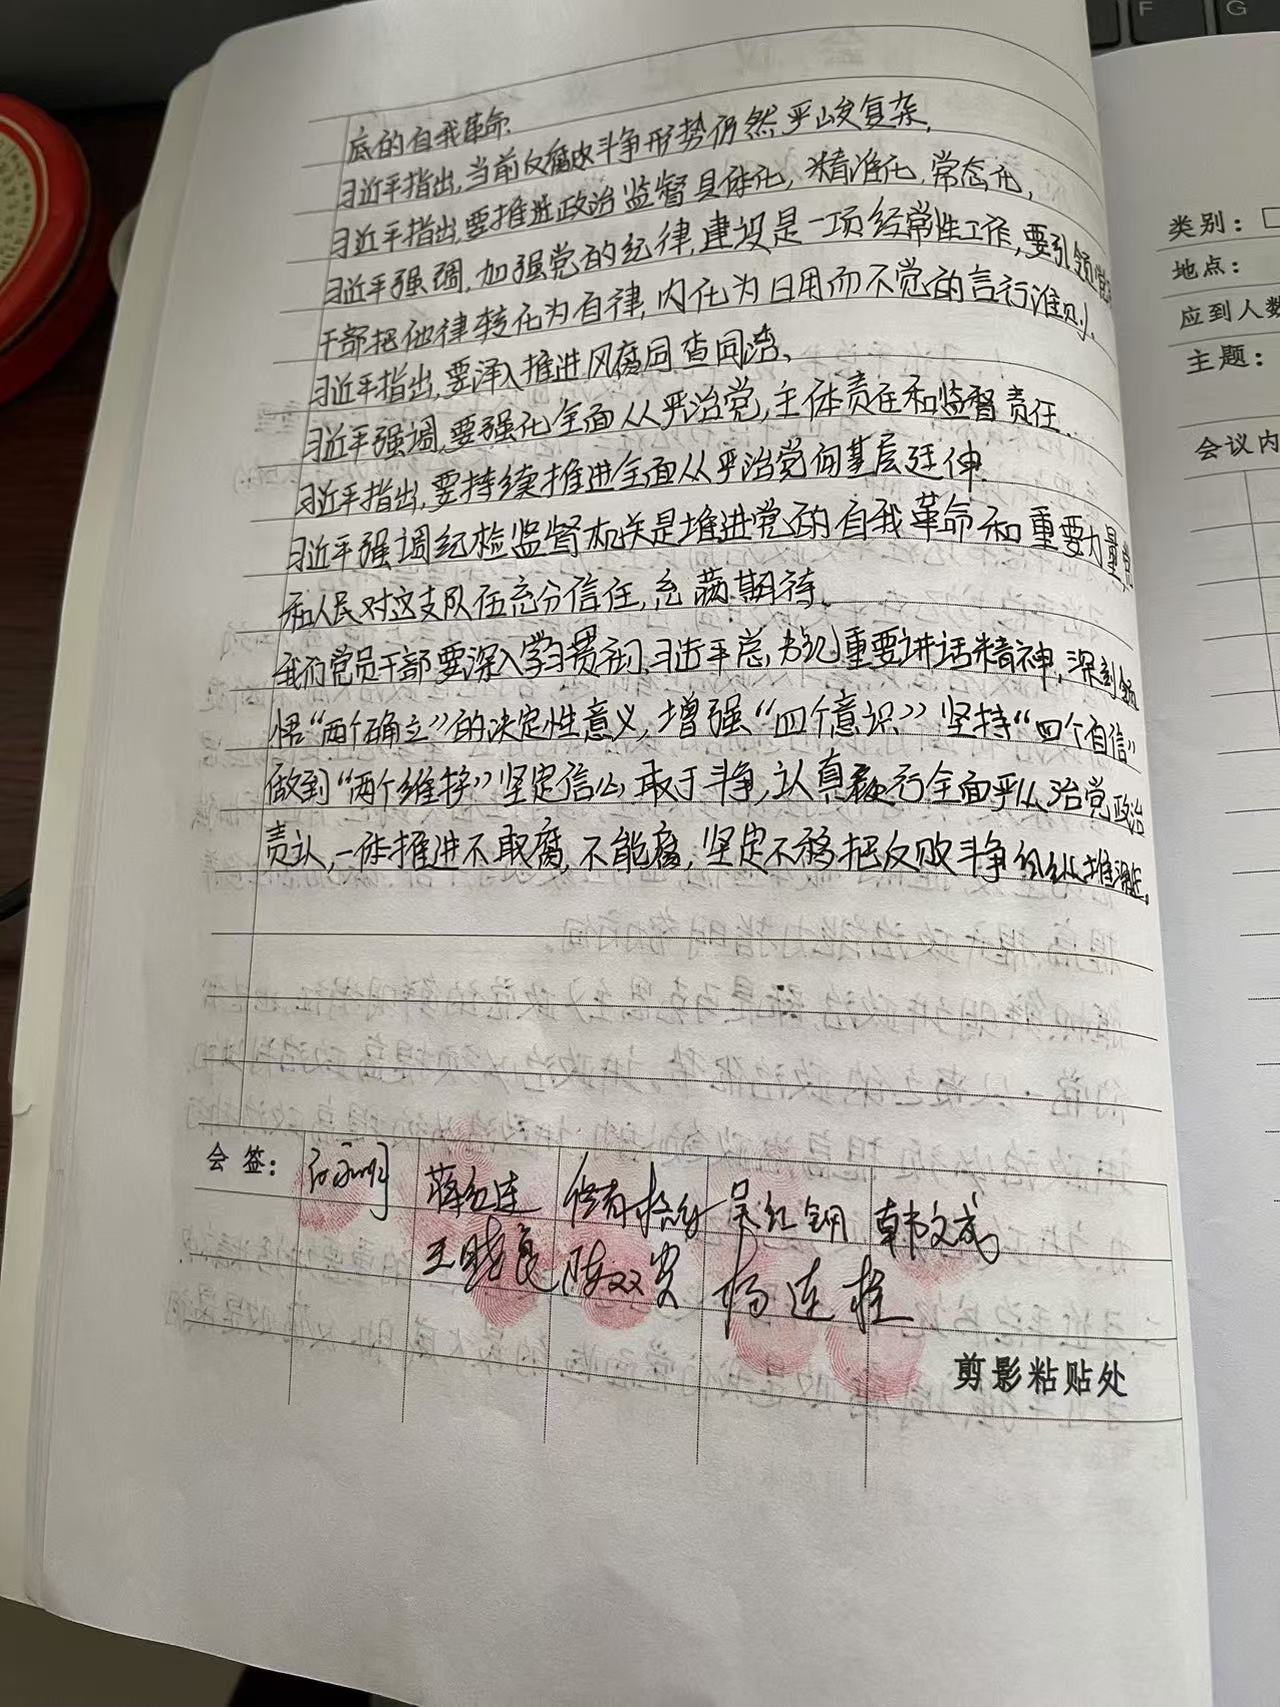 底的自我革命.
习近平指出,当前反腐败斗争形势仍然严峻复杂,
习近平指出,要推进政治监督具体化,精准化,常态化,
习近平强调,加强党的纪律,建设是一项经常性工作,要引领党员
干部把他律转化为自律,内化为日用而不觉的言行准则、
习近平指出,要深入推进风腐同查同治、
习近平强调,要强化全面从严治党,主体责任和监督责任.
习近平指出,要持续推进全面从严治党向基层延伸.
习近平强调纪检监督机关是推进党的自我革命和重要力量,党
和人民对这支队伍充分信任,充满期待.
我们党员干部要深入学习贯彻,习近平总,书记重要讲话精神,深刻领
悟“两个确立”的决定性意义,增强“四个意识”坚持“四个自信”
做到“两个维护”坚定信心,敢于斗争,认真履行全面严从治党政治
责认,一体推进不敢腐,不能腐,坚定不移把反败斗争向纵推深进.
会 签:
蒋红连
吴红钢
韩文成
王晓良
陈双
杨连栓
剪影粘贴处
类别:
地点:
应到人数
主题:
会议内
F
G